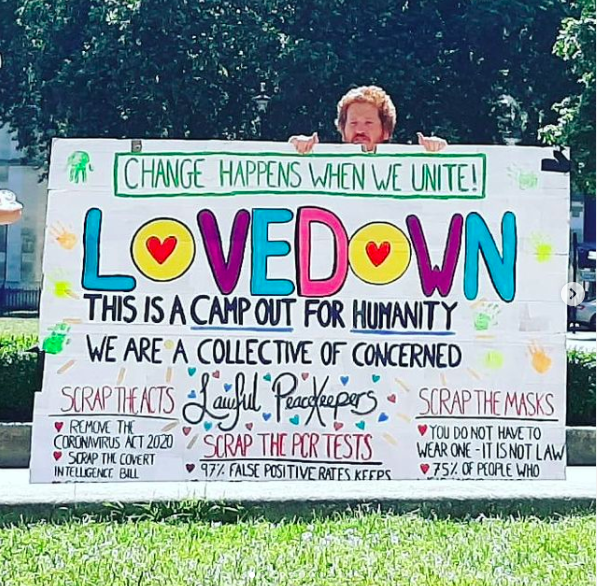 CHANGE HAPPENS WHEN WE UNITE!
LOVEDOWN
THIS IS A CAMP OUT FOR HUMANITY
WE ARE A COLLECTIVE OF CONCERNED
Lawful Peacekeepers
SCRAP THE ACTS
REMOVE THE
CORONAVIRUS ACT 2020
SCRAP THE COVERT
INTELLIGENCE BILL
SCRAP THE PCR TESTS
97% FALSE POSITIVE RATES KEEPS
SCRAP THE MASKS
YOU DO NOT HAVE TO
WEAR ONE - IT IS NOT LAW
75% OF PEOPLE WHO